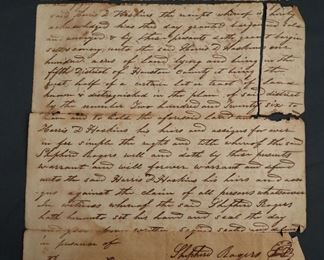 said Harris D Haskins the receipt whereof is
acknowledged hath this day granted bargained
and by these presents doth grant bargain
sell convey unto the said Harris D Haskins one
hundred acres of land lying and being in the
fifth District of Houston County it being the
East half of a certain lot
known & distinguished in the plan of said district
by the number Two hundred and Twenty six to
have and to hold the aforesaid land unto
Harris D Haskins his heirs and assigns for ever
in fee simple the right and title whereof the said
Shepherd Rogers will and doth by these presents
warrant and will forever warrant and defend
unto the said Harris D Haskins his heirs and
against the claim of all persons whatsoever
In witness whereof the said Shepherd Rogers
hath hereunto set his hand and seal the day
and year above written signed sealed and
in presence of
Shepherd Rogers